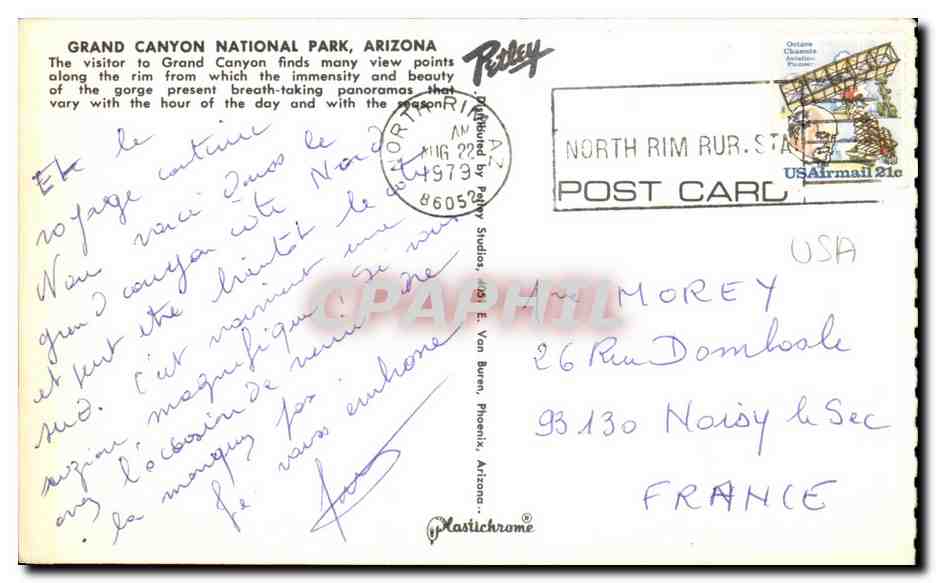 GRAND CANYON NATIONAL PARK, ARIZONA
The visitor to Grand Canyon finds many view points
along the rim from which the immensity and beauty
of the gorge present breath-taking panoramas that
vary with the hour of the day and with the season.
Petley
NORTH RIM, AZ
AM
AUG 22
1979
86052
NORTH RIM RUR. STA
POST CARD
Octave
Chanute
Aviation
Pioneer
USAirmail 21c
USA
Et le
voyage continue
Nous voici dans le
grand canyon côté Nord
et peut être bientôt le côté
sud. C'est vraiment une
magnifique, si vous
avez l'occasion de venir
la manquez pas
Je vous embrasse
Distributed by Petley Studios, 4051 E. Van Buren, Phoenix, Arizona.
MOREY
26 Rue Dombasle
93130 Noisy le Sec
FRANCE
Plastichrome®
CPAPHIL